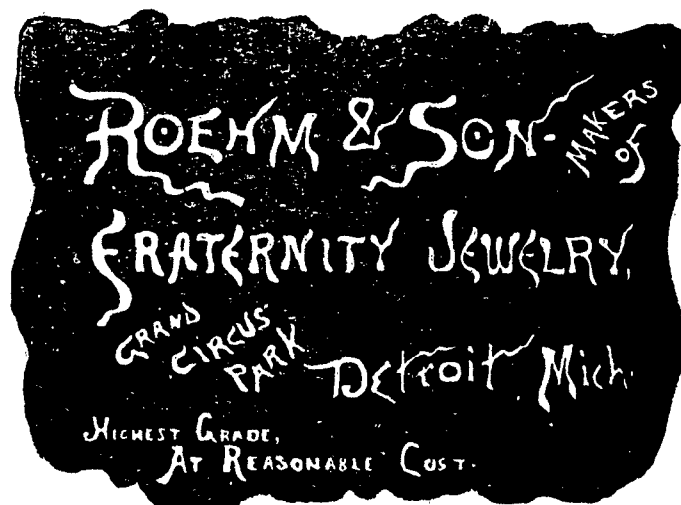 ROEHM & SON-
MAKERS
OF
FRATERNITY JEWELRY,
GRAND
CIRCUS
PARK
Detroit Mich.
HIGHEST GRADE,
AT REASONABLE COST.